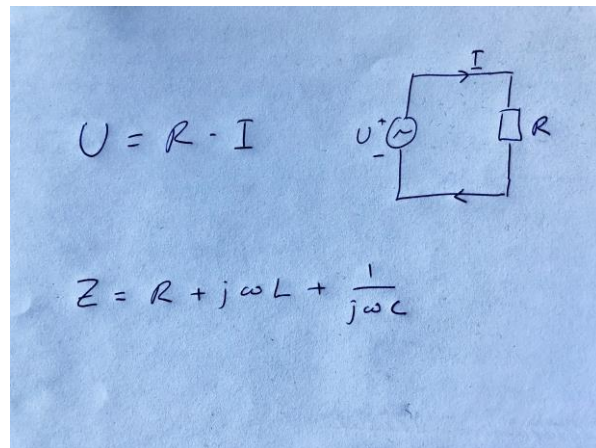 U = R · I
I
U + ~
-
R
Z = R + jωL + 1/jωC